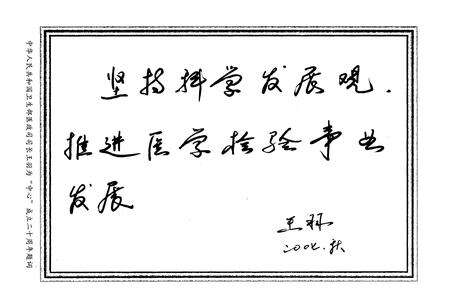 坚持科学发展观.
推进医学检验事业
发展
王羽
秋
中华人民共和国卫生部医政司司长王羽为“中心”成立二十周年题词